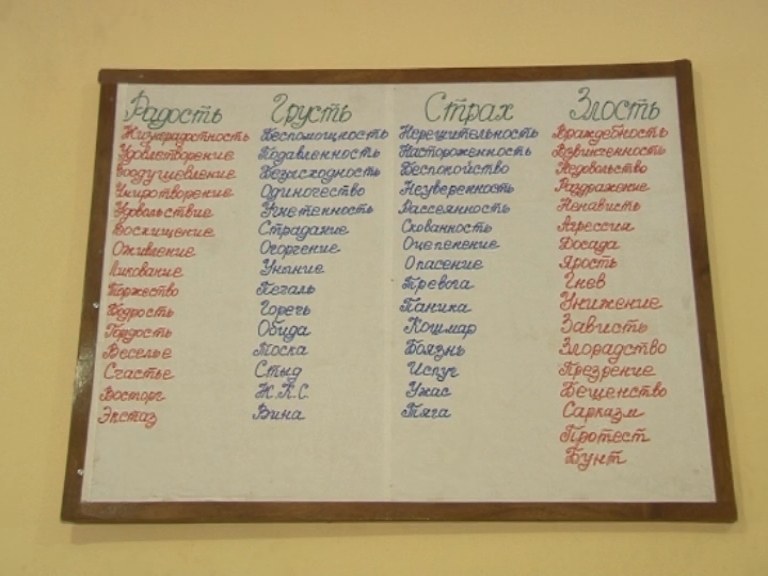 Радость
Жизнерадостность
Удовлетворение
Воодушевление
Умиротворение
Удовольствие
Восхищение
Оживление
Ликование
Торжество
Бодрость
Гордость
Веселье
Счастье
Восторг
Экстаз
Грусть
Беспомощность
Подавленность
Безысходность
Одиночество
Угнетенность
Страдание
Огорчение
Уныние
Печаль
Горечь
Обида
Тоска
Стыд
Ж.К.С.
Вина
Страх
Нерешительность
Настороженность
Беспокойство
Неуверенность
Рассеянность
Скованность
Оцепенение
Опасение
Тревога
Паника
Кошмар
Боязнь
Испуг
Ужас
Тяга
Злость
Враждебность
Взвинченность
Недовольство
Раздражение
Ненависть
Агрессия
Досада
Ярость
Гнев
Унижение
Зависть
Злорадство
Презрение
Бешенство
Сарказм
Протест
Бунт